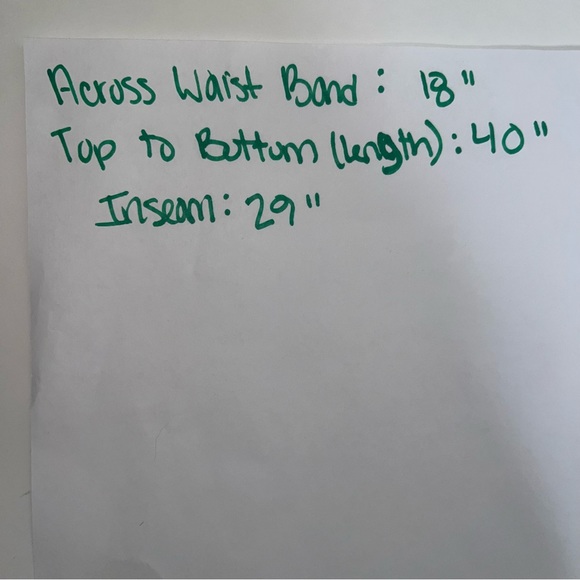 Across Waist Band: 18"
Top to Bottom (length): 40"
Inseam: 29"